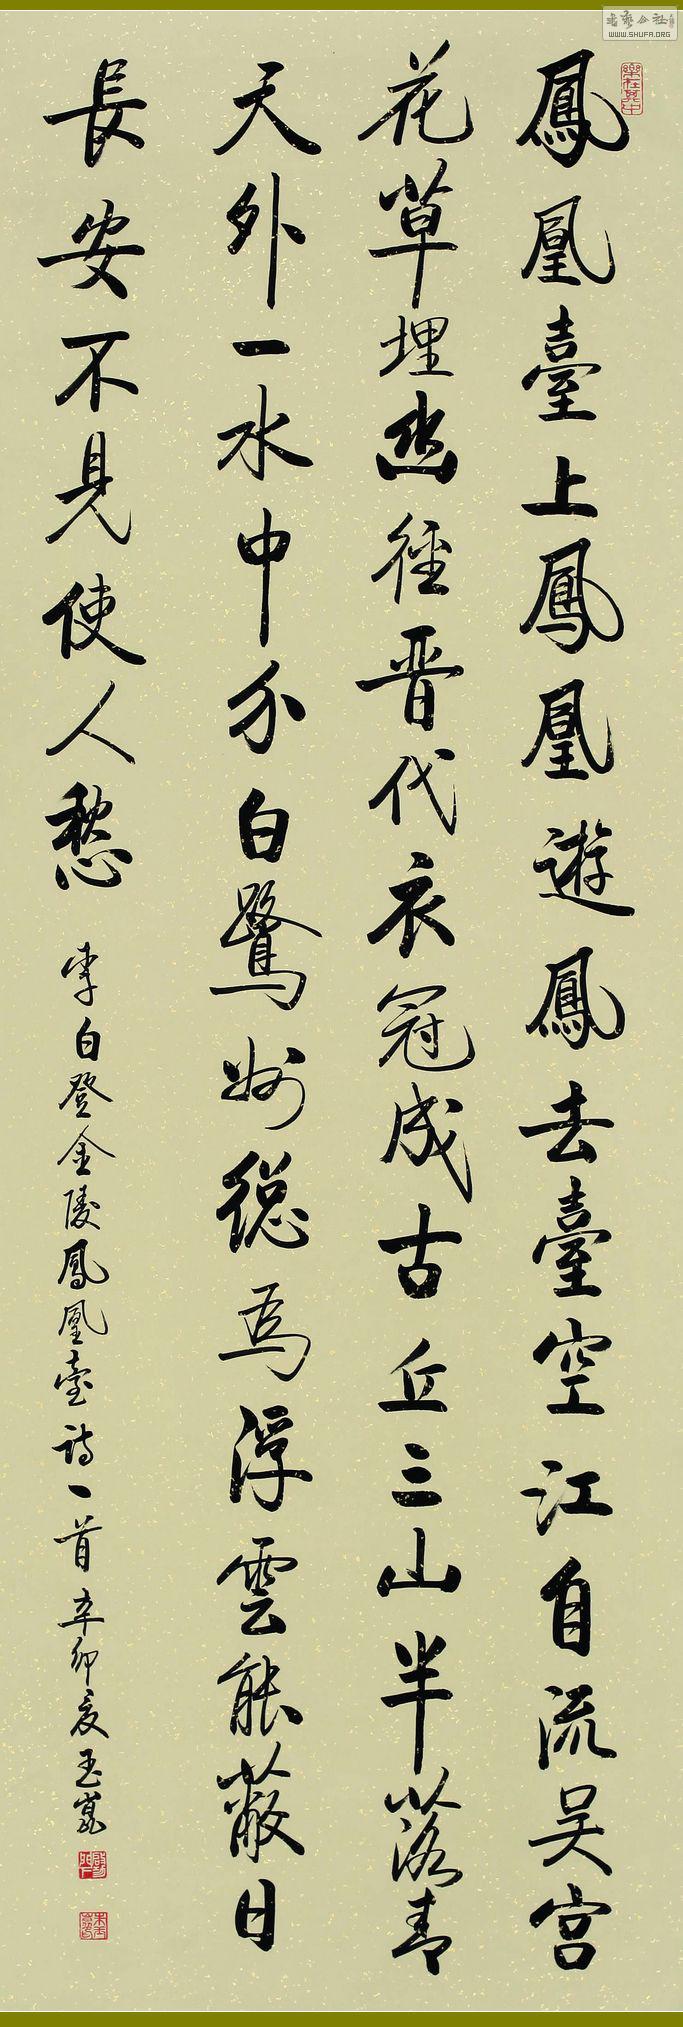 鳳凰臺上鳳凰遊鳳去臺空江自流吴宫
花草埋幽徑晋代衣冠成古丘三山半落青
天外一水中分白鷺州總為浮雲能蔽日
長安不見使人愁
李白登金陵鳳凰臺詩一首辛卯夏玉嵬
WWW.SHUFA.ORG